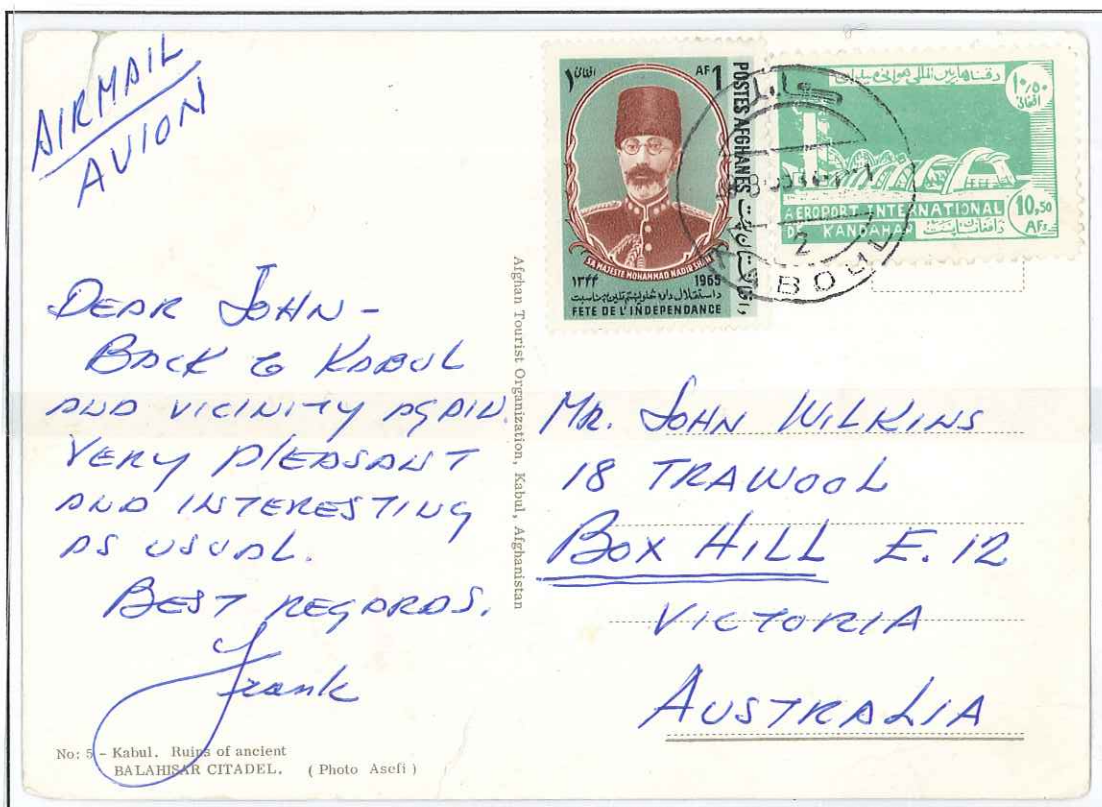 AIRMAIL
AVION
DEAR JOHN -
BACK TO KABUL
AND VICINITY AGAIN.
VERY PLEASANT
AND INTERESTING
AS USUAL.
BEST REGARDS.
Frank
No: 5 - Kabul. Ruins of ancient
BALAHISAR CITADEL. (Photo Asefi)
Afghan Tourist Organization, Kabul, Afghanistan
۱ افغانی
AF 1
POSTES AFGHANES
S.A. MAJESTE MOHAMMAD NADIR SHAH
۱۳۴۴ 1965
FETE DE L'INDEPENDANCE
۱۰/۵۰
افغانی
AEROPORT INTERNATIONAL
DE KANDAHAR
10,50
AFs
KABOUL
2
MR. JOHN WILKINS
18 TRAWOOL
BOX HILL E. 12
VICTORIA
AUSTRALIA